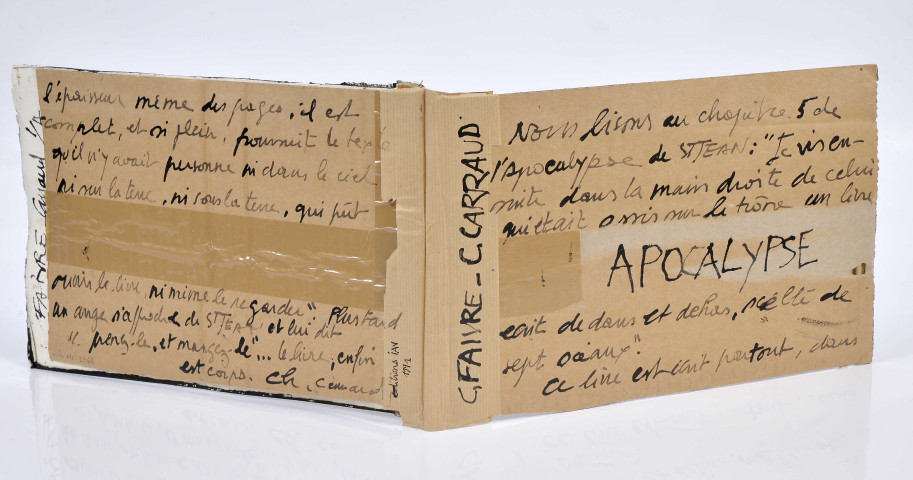 Nous lisons au chapitre 5 de
l'Apocalypse de ST JEAN : "Je vis en-
suite dans la main droite de celui
qui était assis sur le trône un livre
APOCALYPSE
écrit dedans et dehors, scellé de
sept sceaux".
Ce livre est écrit partout, dans
G. FAIVRE - C. CARRAUD
éditions IAN
l'épaisseur même des pages, il est
complet, et si plein, poursuit le texte
qu'il n'y avait personne ni dans le ciel
ni sur la terre, ni sous la terre, qui pût
ouvrir le livre, ni même le regarder". Plus tard
un ange s'approche de ST JEAN et lui dit
"prends-le, et mangez-le"... le livre, enfin
est corps. Ch. Carraud
FAIVRE Carraud